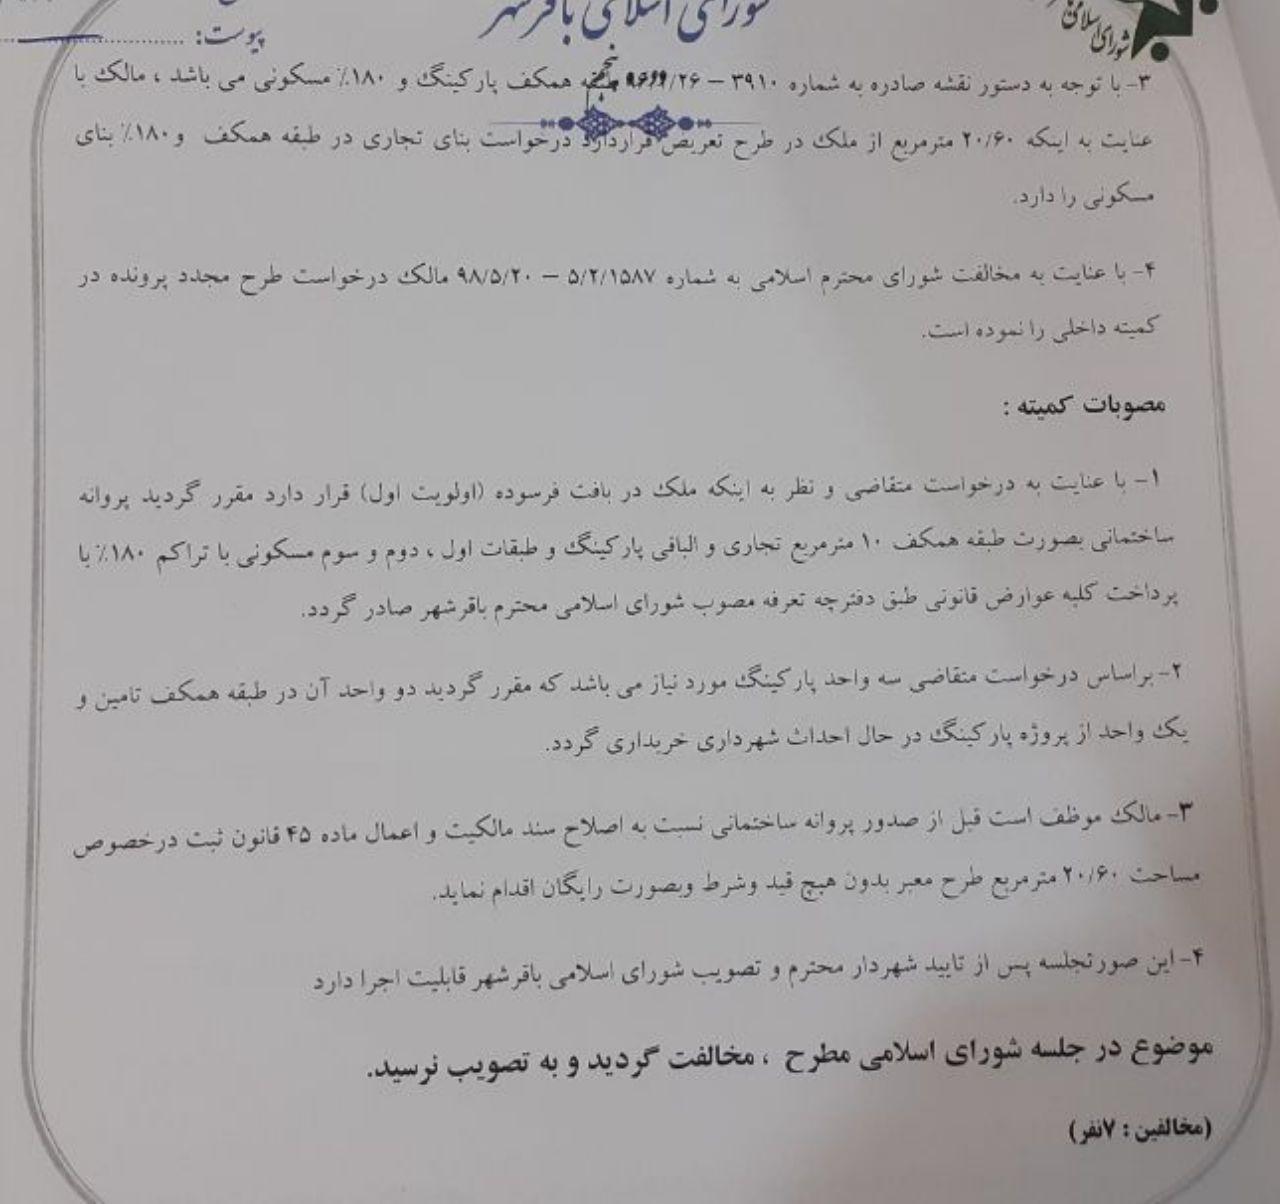 شورای اسلامی باقرشهر
شورای اسلامی
پیوست: ....................
۳- با توجه به دستور نقشه صادره به شماره ۳۹۱۰ – همکف پارکینگ و ۱۸۰٪ مسکونی می باشد ، مالک با
عنایت به اینکه ۲۰/۶۰ مترمربع از ملک در طرح تعریض قراردارد درخواست بنای تجاری در طبقه همکف و ۱۸۰٪ بنای
مسکونی را دارد.
۴- با عنایت به مخالفت شورای محترم اسلامی به شماره ۵/۲/۱۵۸۷ – ۹۸/۵/۲۰ مالک درخواست طرح مجدد پرونده در
کمیته داخلی را نموده است.
مصوبات کمیته :
۱- با عنایت به درخواست متقاضی و نظر به اینکه ملک در بافت فرسوده (اولویت اول) قرار دارد مقرر گردید پروانه
ساختمانی بصورت طبقه همکف ۱۰ مترمربع تجاری و الباقی پارکینگ و طبقات اول ، دوم و سوم مسکونی با تراکم ۱۸۰٪ با
پرداخت کلیه عوارض قانونی طبق دفترچه تعرفه مصوب شورای اسلامی محترم باقرشهر صادر گردد.
۲- براساس درخواست متقاضی سه واحد پارکینگ مورد نیاز می باشد که مقرر گردید دو واحد آن در طبقه همکف تامین و
یک واحد از پروژه پارکینگ در حال احداث شهرداری خریداری گردد.
۳- مالک موظف است قبل از صدور پروانه ساختمانی نسبت به اصلاح سند مالکیت و اعمال ماده ۴۵ قانون ثبت درخصوص
مساحت ۲۰/۶۰ مترمربع طرح معبر بدون هیچ قید وشرط وبصورت رایگان اقدام نماید.
۴- این صورتجلسه پس از تایید شهردار محترم و تصویب شورای اسلامی باقرشهر قابلیت اجرا دارد
موضوع در جلسه شورای اسلامی مطرح ، مخالفت گردید و به تصویب نرسید.
(مخالفین : ۷نفر)